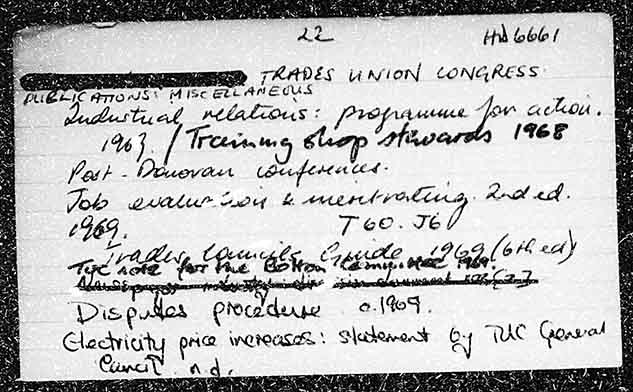 22 HD6661
TRADES UNION CONGRESS
PUBLICATIONS: MISCELLANEOUS
Industrial relations: programme for action.
1963. / Training shop stewards 1968
Post-Donovan conferences.
Job evaluation & merit rating. 2nd ed.
1969. T60.J6
Trades Councils Guide 1969 (6th ed)
TUC note for the Bolton Committee 1969
Disputes procedure 1969.
Electricity price increases: statement by TUC General
Council n.d.